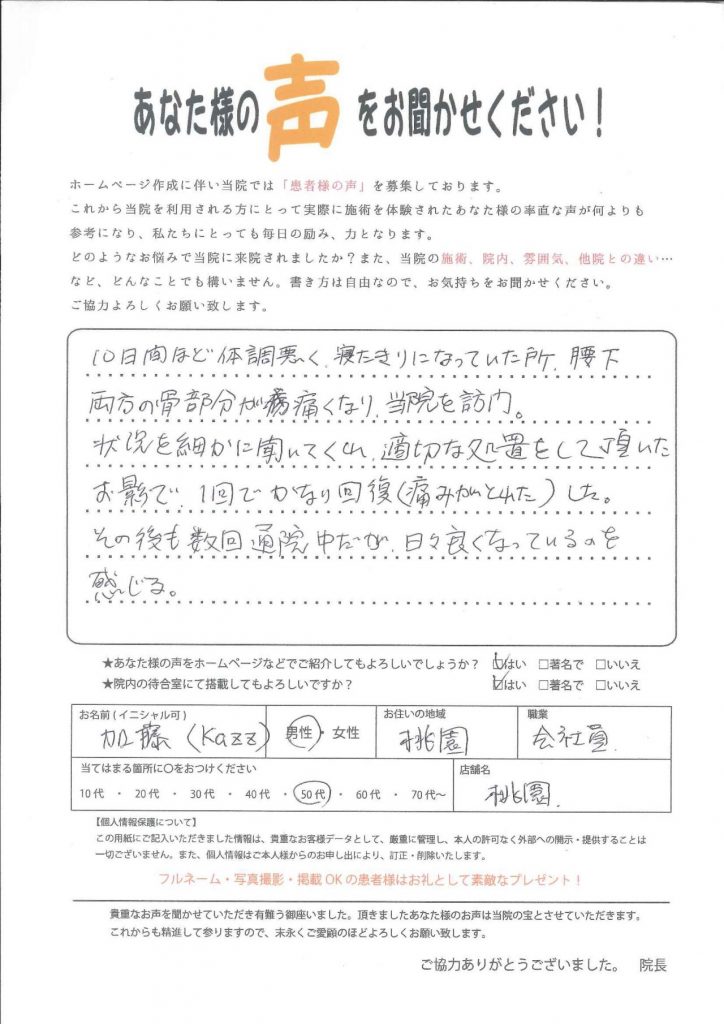 あなた様の声をお聞かせください！
ホームページ作成に伴い当院では「患者様の声」を募集しております。
これから当院を利用される方にとって実際に施術を体験されたあなた様の率直な声が何よりも
参考になり、私たちにとっても毎日の励み、力となります。
どのようなお悩みで当院に来院されましたか？また、当院の施術、院内、雰囲気、他院との違い…
など、どんなことでも構いません。書き方は自由なので、お気持ちをお聞かせください。
ご協力よろしくお願い致します。
10日間ほど体調悪く、寝たきりになっていた所、腰下
両方の骨部分が痛くなり、当院を訪内。
状況を細かに聞いてくれ、適切な処置をして頂いた
お影で、1回でかなり回復(痛みがとれた)した。
その後も数回通院中だが、日々良くなっているのを
感じる。
★あなた様の声をホームページなどでご紹介してもよろしいでしょうか？ ☑はい □著名で □いいえ
★院内の待合室にて搭載してもよろしいですか？ ☑はい □著名で □いいえ
お名前(イニシャル可) 加藤(Kazz) 男性・女性 お住いの地域 桃園 職業 会社員
当てはまる箇所に○をおつけください 店舗名
10代・20代・30代・40代・50代・60代・70代～ 桃園
【個人情報保護について】
この用紙にご記入いただきました情報は、貴重なお客様データとして、厳重に管理し、本人の許可なく外部への開示・提供することは
一切ございません。また、個人情報はご本人様からのお申し出により、訂正・削除いたします。
フルネーム・写真撮影・掲載OKの患者様はお礼として素敵なプレゼント！
貴重なお声を聞かせていただき有難う御座いました。頂きましたあなた様のお声は当院の宝とさせていただきます。
これからも精進して参りますので、末永くご愛顧のほどよろしくお願い致します。
ご協力ありがとうございました。 院長